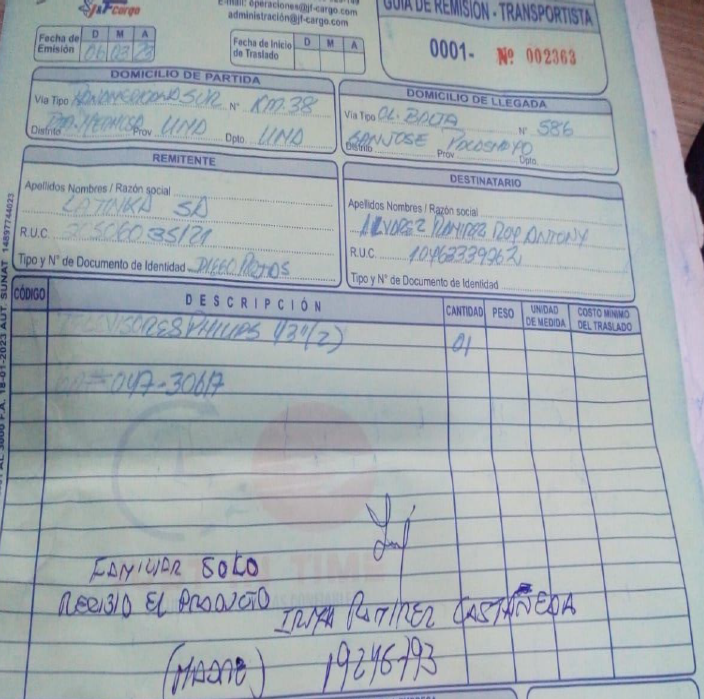 J&F Cargo
E-mail: operaciones@jf-cargo.com
administración@jf-cargo.com
GUIA DE REMISIÓN - TRANSPORTISTA
0001- Nº 002363
Fecha de Emisión D M A
06 03 23
Fecha de Inicio de Traslado D M A
DOMICILIO DE PARTIDA
Vía Tipo SUR Nº KM.38
Distrito Prov Dpto.
DOMICILIO DE LLEGADA
Vía Tipo CL. BALTA Nº 586
Distrito SAN JOSE Prov Dpto
REMITENTE
Apellidos Nombres / Razón social
SA
R.U.C.
Tipo y N° de Documento de Identidad DIEGO
DESTINATARIO
Apellidos Nombres / Razón social
ALVAREZ RAMIREZ ROY ANTONY
R.U.C. 10463339962
Tipo y N° de Documento de Identidad
CÓDIGO DESCRIPCIÓN CANTIDAD PESO UNIDAD DE MEDIDA COSTO MINIMO DEL TRASLADO
TELEVISORES PHILIPS 43"(2) 01
047-30617
FAMILIAR SOLO
RECIBIO EL PRODUCTO
IRMA RAMIREZ CASTAÑEDA
(MADRE) 19246793
18-01-2023 AUT. SUNAT 14897744023